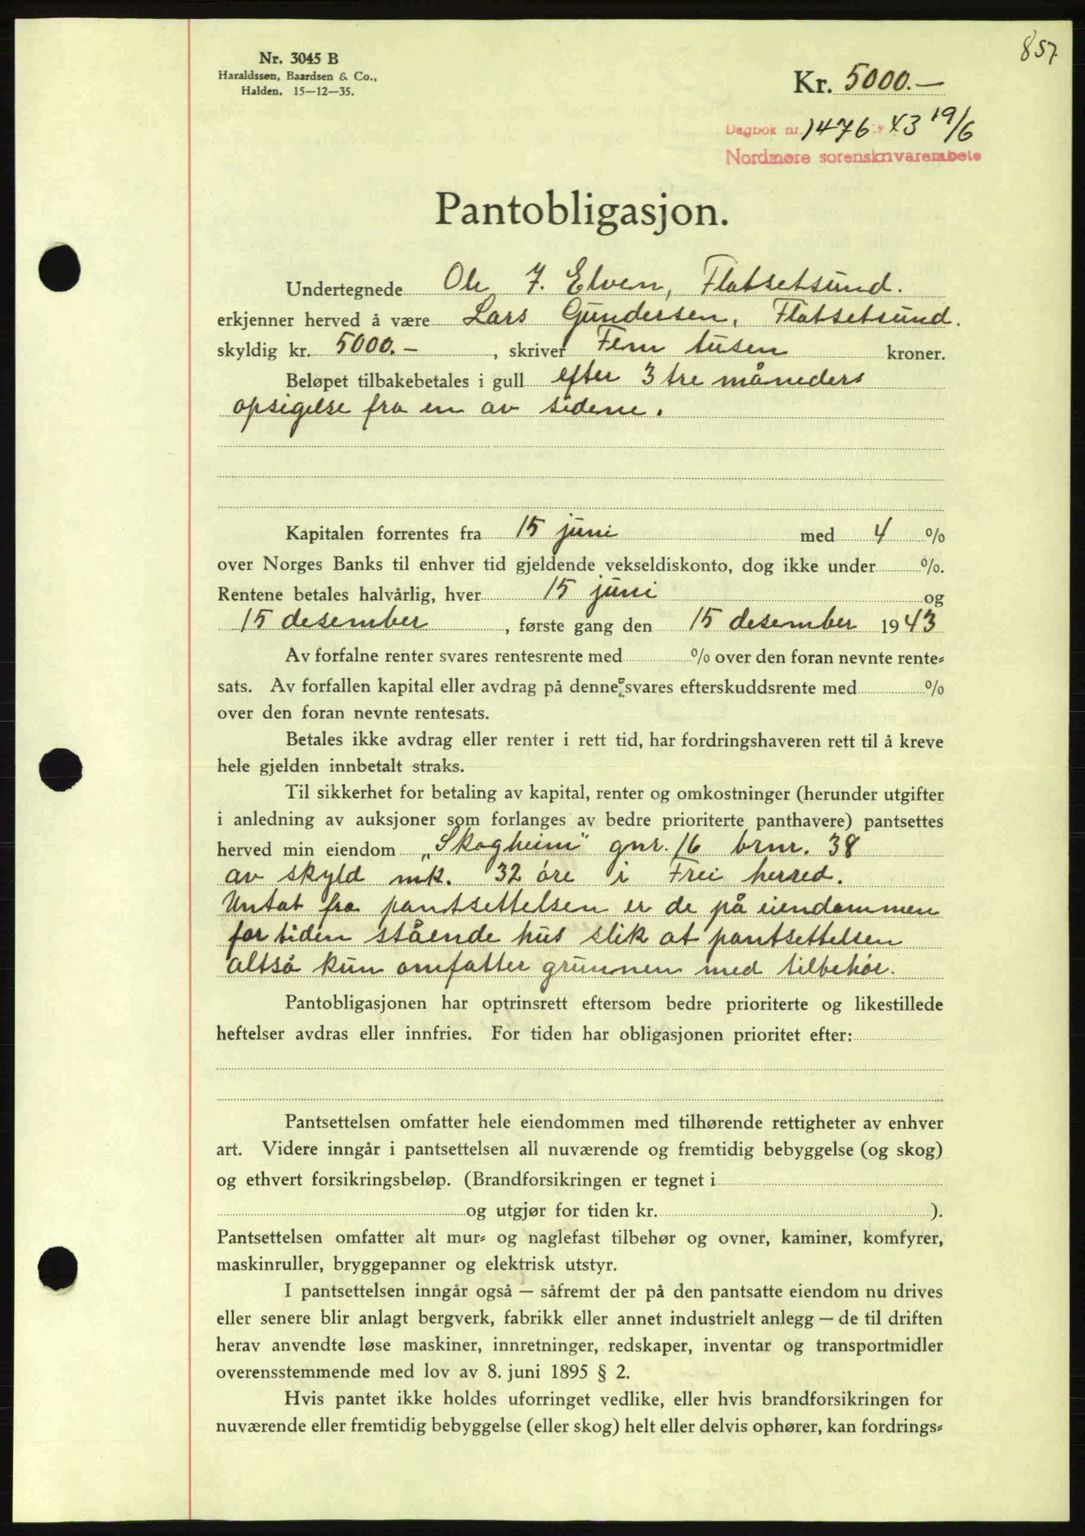 857
Nr. 3045 B
Haraldssøn, Baardsen & Co.,
Halden. 15—12—35.
Kr. 5000.—
Dagbok nr. 1476 43 19/6
Nordmøre sorenskrivarembete
Pantobligasjon.
Undertegnede Ole J. Elven, Flatsetsund.
erkjenner herved å være Lars Gundersen, Flatsetsund.
skyldig kr. 5000.— , skriver Fem tusen kroner.
Beløpet tilbakebetales i gull efter 3 tre måneders
opsigelse fra en av sidene.
Kapitalen forrentes fra 15 juni med 4 %
over Norges Banks til enhver tid gjeldende vekseldiskonto, dog ikke under %.
Rentene betales halvårlig, hver 15 juni og
15 desember , første gang den 15 desember 1943
Av forfalne renter svares rentesrente med % over den foran nevnte rente-
sats. Av forfallen kapital eller avdrag på denne svares efterskuddsrente med %
over den foran nevnte rentesats.
Betales ikke avdrag eller renter i rett tid, har fordringshaveren rett til å kreve
hele gjelden innbetalt straks.
Til sikkerhet for betaling av kapital, renter og omkostninger (herunder utgifter
i anledning av auksjoner som forlanges av bedre prioriterte panthavere) pantsettes
herved min eiendom „Skogheim" gnr. 16 brnr. 38
av skyld mk. 32 øre i Frei herred.
Untat fra pantsettelsen er de på eiendommen
for tiden stående hus slik at pantsettelsen
altså kun omfatter grunnen med tilbehør.
Pantobligasjonen har optrinsrett eftersom bedre prioriterte og likestillede
heftelser avdras eller innfries. For tiden har obligasjonen prioritet efter:
Pantsettelsen omfatter hele eiendommen med tilhørende rettigheter av enhver
art. Videre inngår i pantsettelsen all nuværende og fremtidig bebyggelse (og skog)
og ethvert forsikringsbeløp. (Brandforsikringen er tegnet i
og utgjør for tiden kr. ).
Pantsettelsen omfatter alt mur- og naglefast tilbehør og ovner, kaminer, komfyrer,
maskinruller, bryggepanner og elektrisk utstyr.
I pantsettelsen inngår også — såfremt der på den pantsatte eiendom nu drives
eller senere blir anlagt bergverk, fabrikk eller annet industrielt anlegg — de til driften
herav anvendte løse maskiner, innretninger, redskaper, inventar og transportmidler
overensstemmende med lov av 8. juni 1895 § 2.
Hvis pantet ikke holdes uforringet vedlike, eller hvis brandforsikringen for
nuværende eller fremtidig bebyggelse (eller skog) helt eller delvis ophører, kan fordrings-